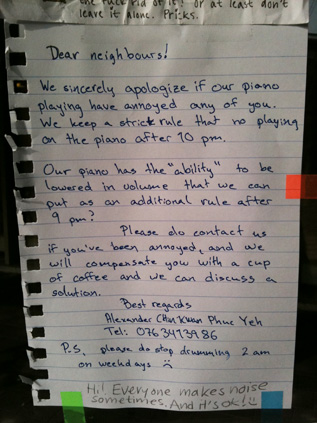 the fuck rid of it! or at least don't
leave it alone. Pricks.
Dear neighbours!
We sincerely apologize if our piano
playing have annoyed any of you.
We keep a strick rule that no playing
on the piano after 10 pm.
Our piano has the "ability" to be
lowered in volume that we can
put as an additional rule after
9 pm?
Please do contact us
if you've been annoyed, and we
will compensate you with a cup
of coffee and we can discuss a
solution.
Best regards
Alexander Kwan Phuc Yeh
Tel: 0763473986
P.S. please do stop drumming 2 am
on weekdays :(
Hi! Everyone makes noise
sometimes. And it's ok! :)